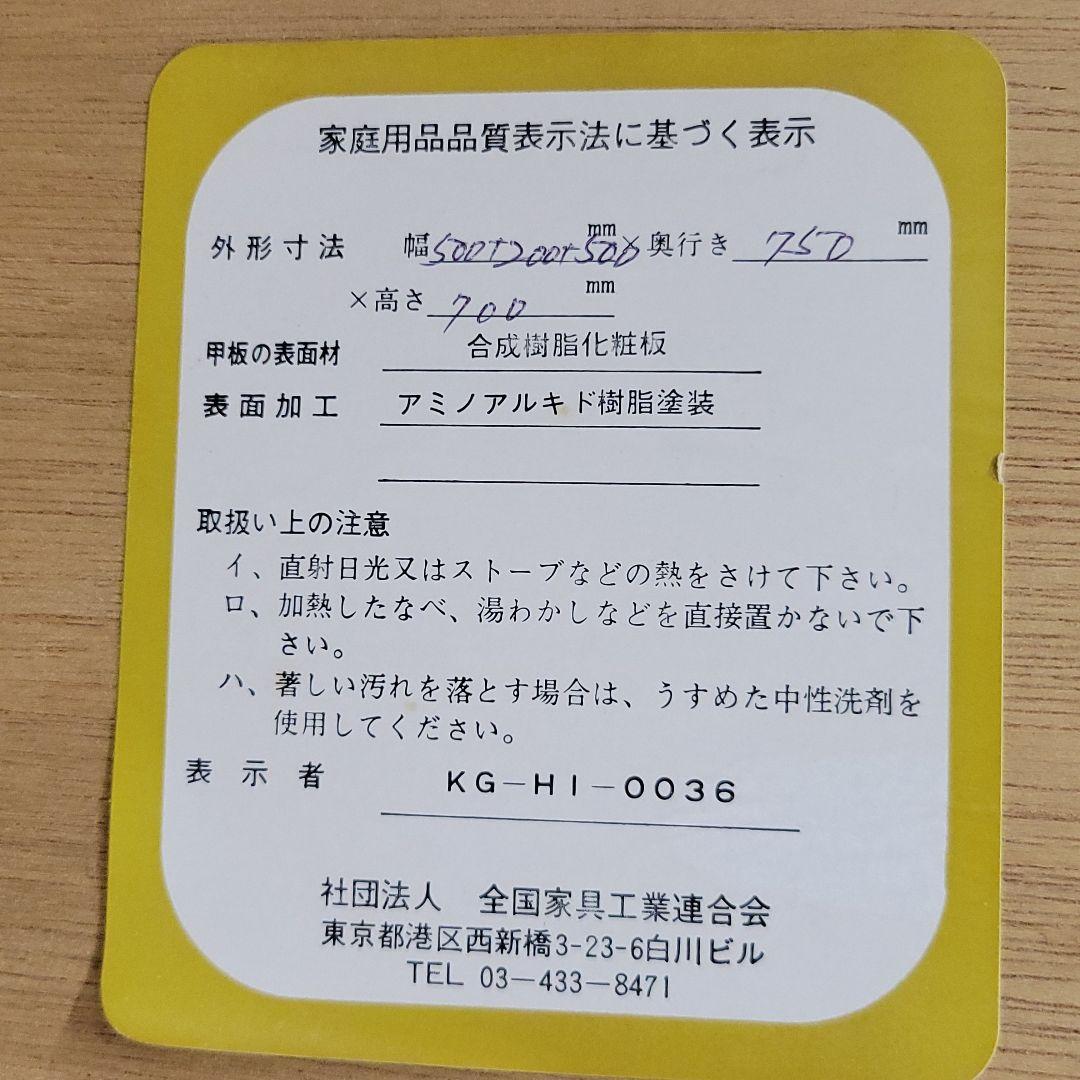 家庭用品品質表示法に基づく表示
外形寸法 幅500+200+500mm×奥行き 750 mm
×高さ 700 mm
甲板の表面材 合成樹脂化粧板
表面加工 アミノアルキド樹脂塗装
取扱い上の注意
イ、直射日光又はストーブなどの熱をさけて下さい。
ロ、加熱したなべ、湯わかしなどを直接置かないで下
さい。
ハ、著しい汚れを落とす場合は、うすめた中性洗剤を
使用してください。
表示者 KG-HI-0036
社団法人 全国家具工業連合会
東京都港区西新橋3-23-6白川ビル
TEL 03-433-8471